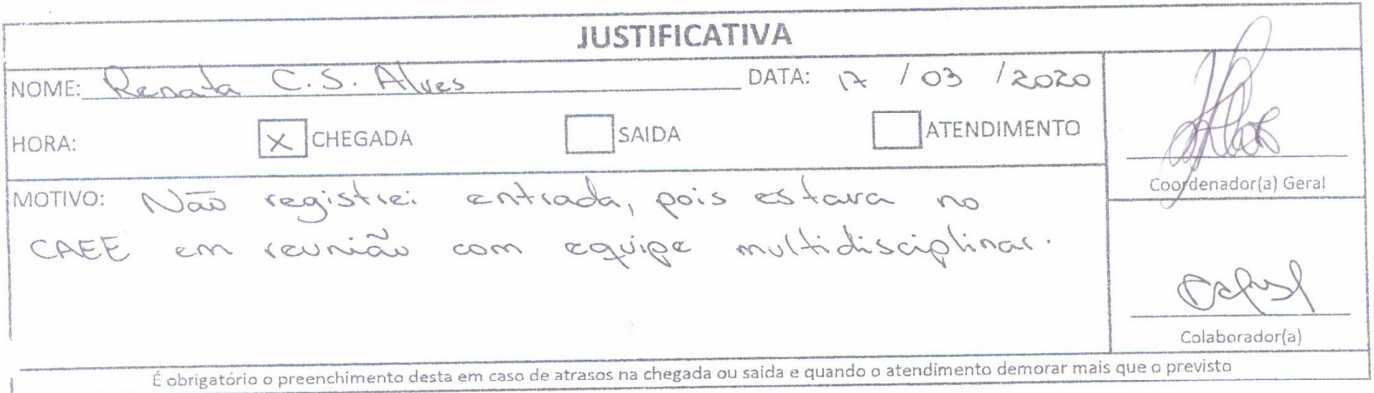 JUSTIFICATIVA
NOME: Renata C. S. Alves DATA: 17 / 03 / 2020
HORA: X CHEGADA SAIDA ATENDIMENTO
MOTIVO: Não registrei entrada, pois estava no
CAEE em reunião com equipe multidisciplinar.
Coordenador(a) Geral
Colaborador(a)
É obrigatório o preenchimento desta em caso de atrasos na chegada ou saida e quando o atendimento demorar mais que o previsto